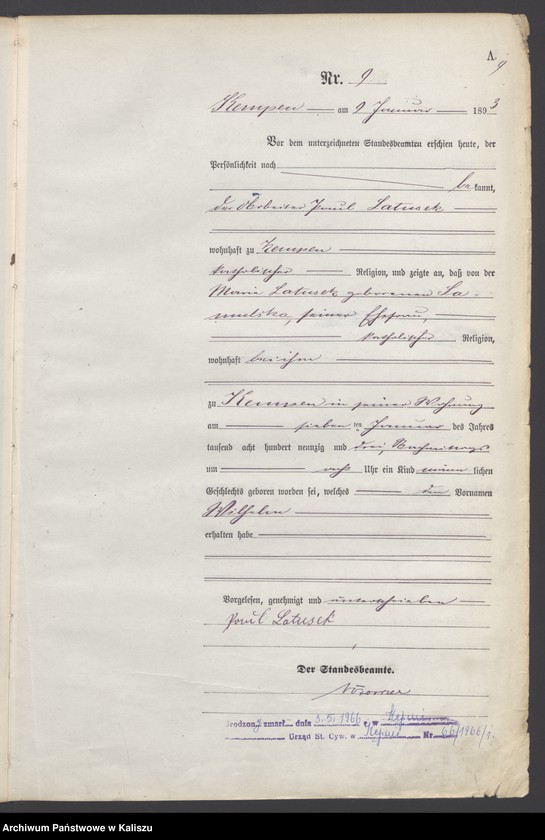 A.
9
Nr. 9
Kempen am 9 Januar 1893
Vor dem unterzeichneten Standesbeamten erschien heute, der
Persönlichkeit nach
bekannt,
der Arbeiter Paul Latusek
wohnhaft zu Kempen
katholischer Religion, und zeigte an, daß von der
Maria Latusek geborenen Sa-
mulska, seiner Ehefrau,
katholischer Religion,
wohnhaft bei ihm
zu Kempen in seiner Wohnung
am sieben ten Januar des Jahres
tausend acht hundert neunzig und drei, Nachmittags
um acht Uhr ein Kind männlichen
Geschlechts geboren worden sei, welches den Vornamen
Wilhelm
erhalten habe
Vorgelesen, genehmigt und unterschrieben
Paul Latusek
Der Standesbeamte.
Urodzony zmarł dnia 3.5.1966 w Kępnie
Urząd St. Cyw. w Kępnie Nr. 66/1966/
Archiwum Państwowe w Kaliszu